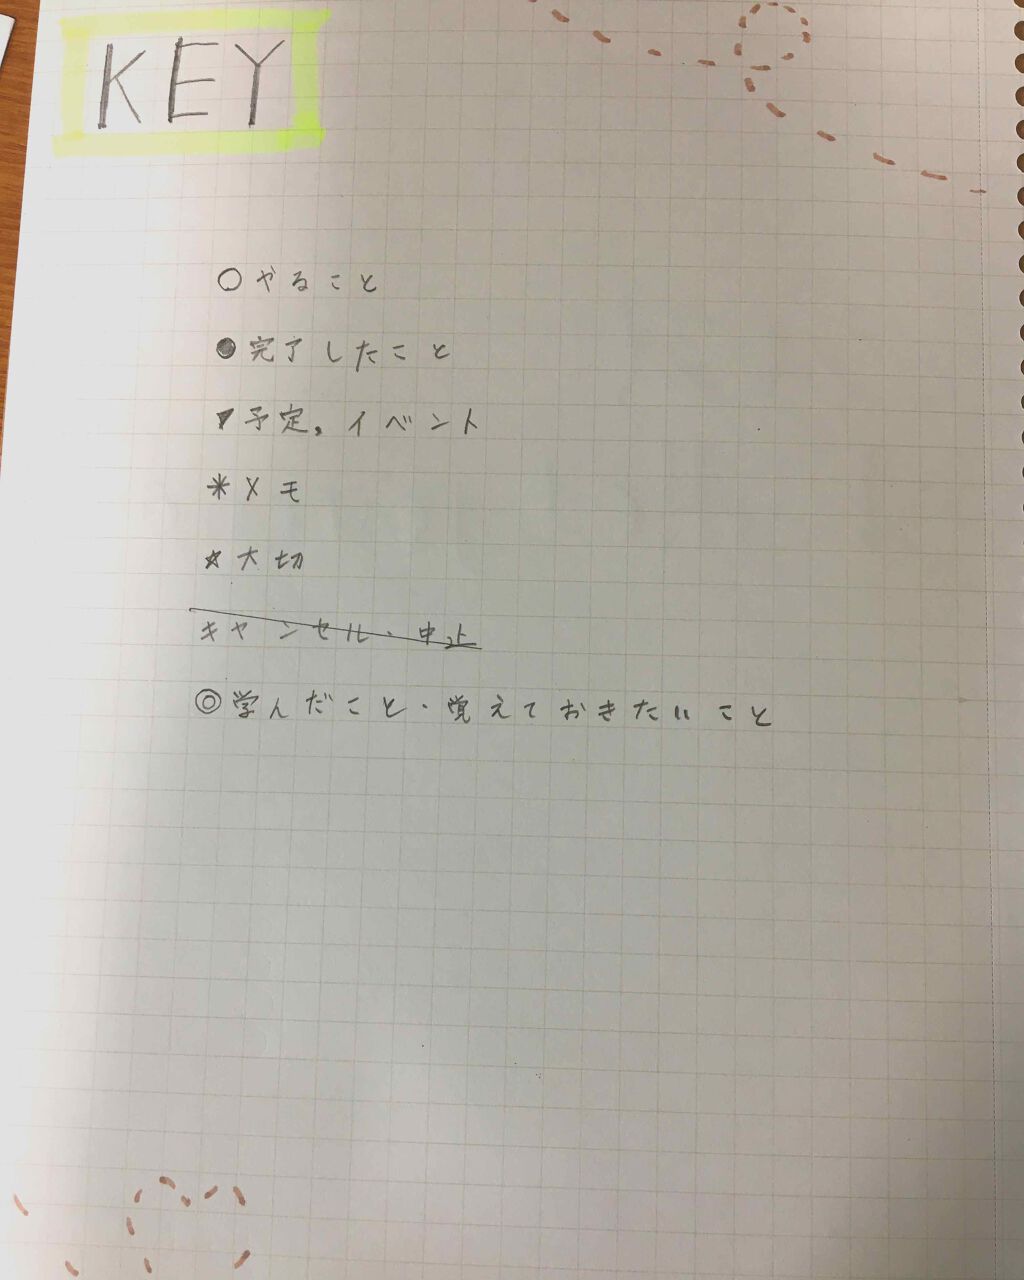 KEY
○やること
●完了したこと
▼予定,イベント
*メモ
☆大切
キャンセル・中止
◎学んだこと・覚えておきたいこと